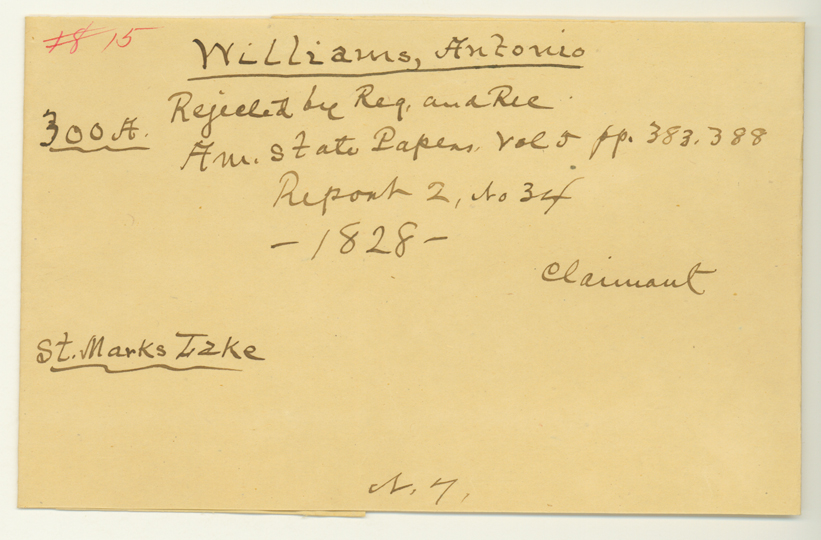 18 15
Williams, Antonio
300 A. Rejected by Reg. and Rec
Am. State Papers. Vol 5 pp. 383. 388
Report 2, No 34
- 1828 -
Claimant
St. Marks Lake
N. 7.